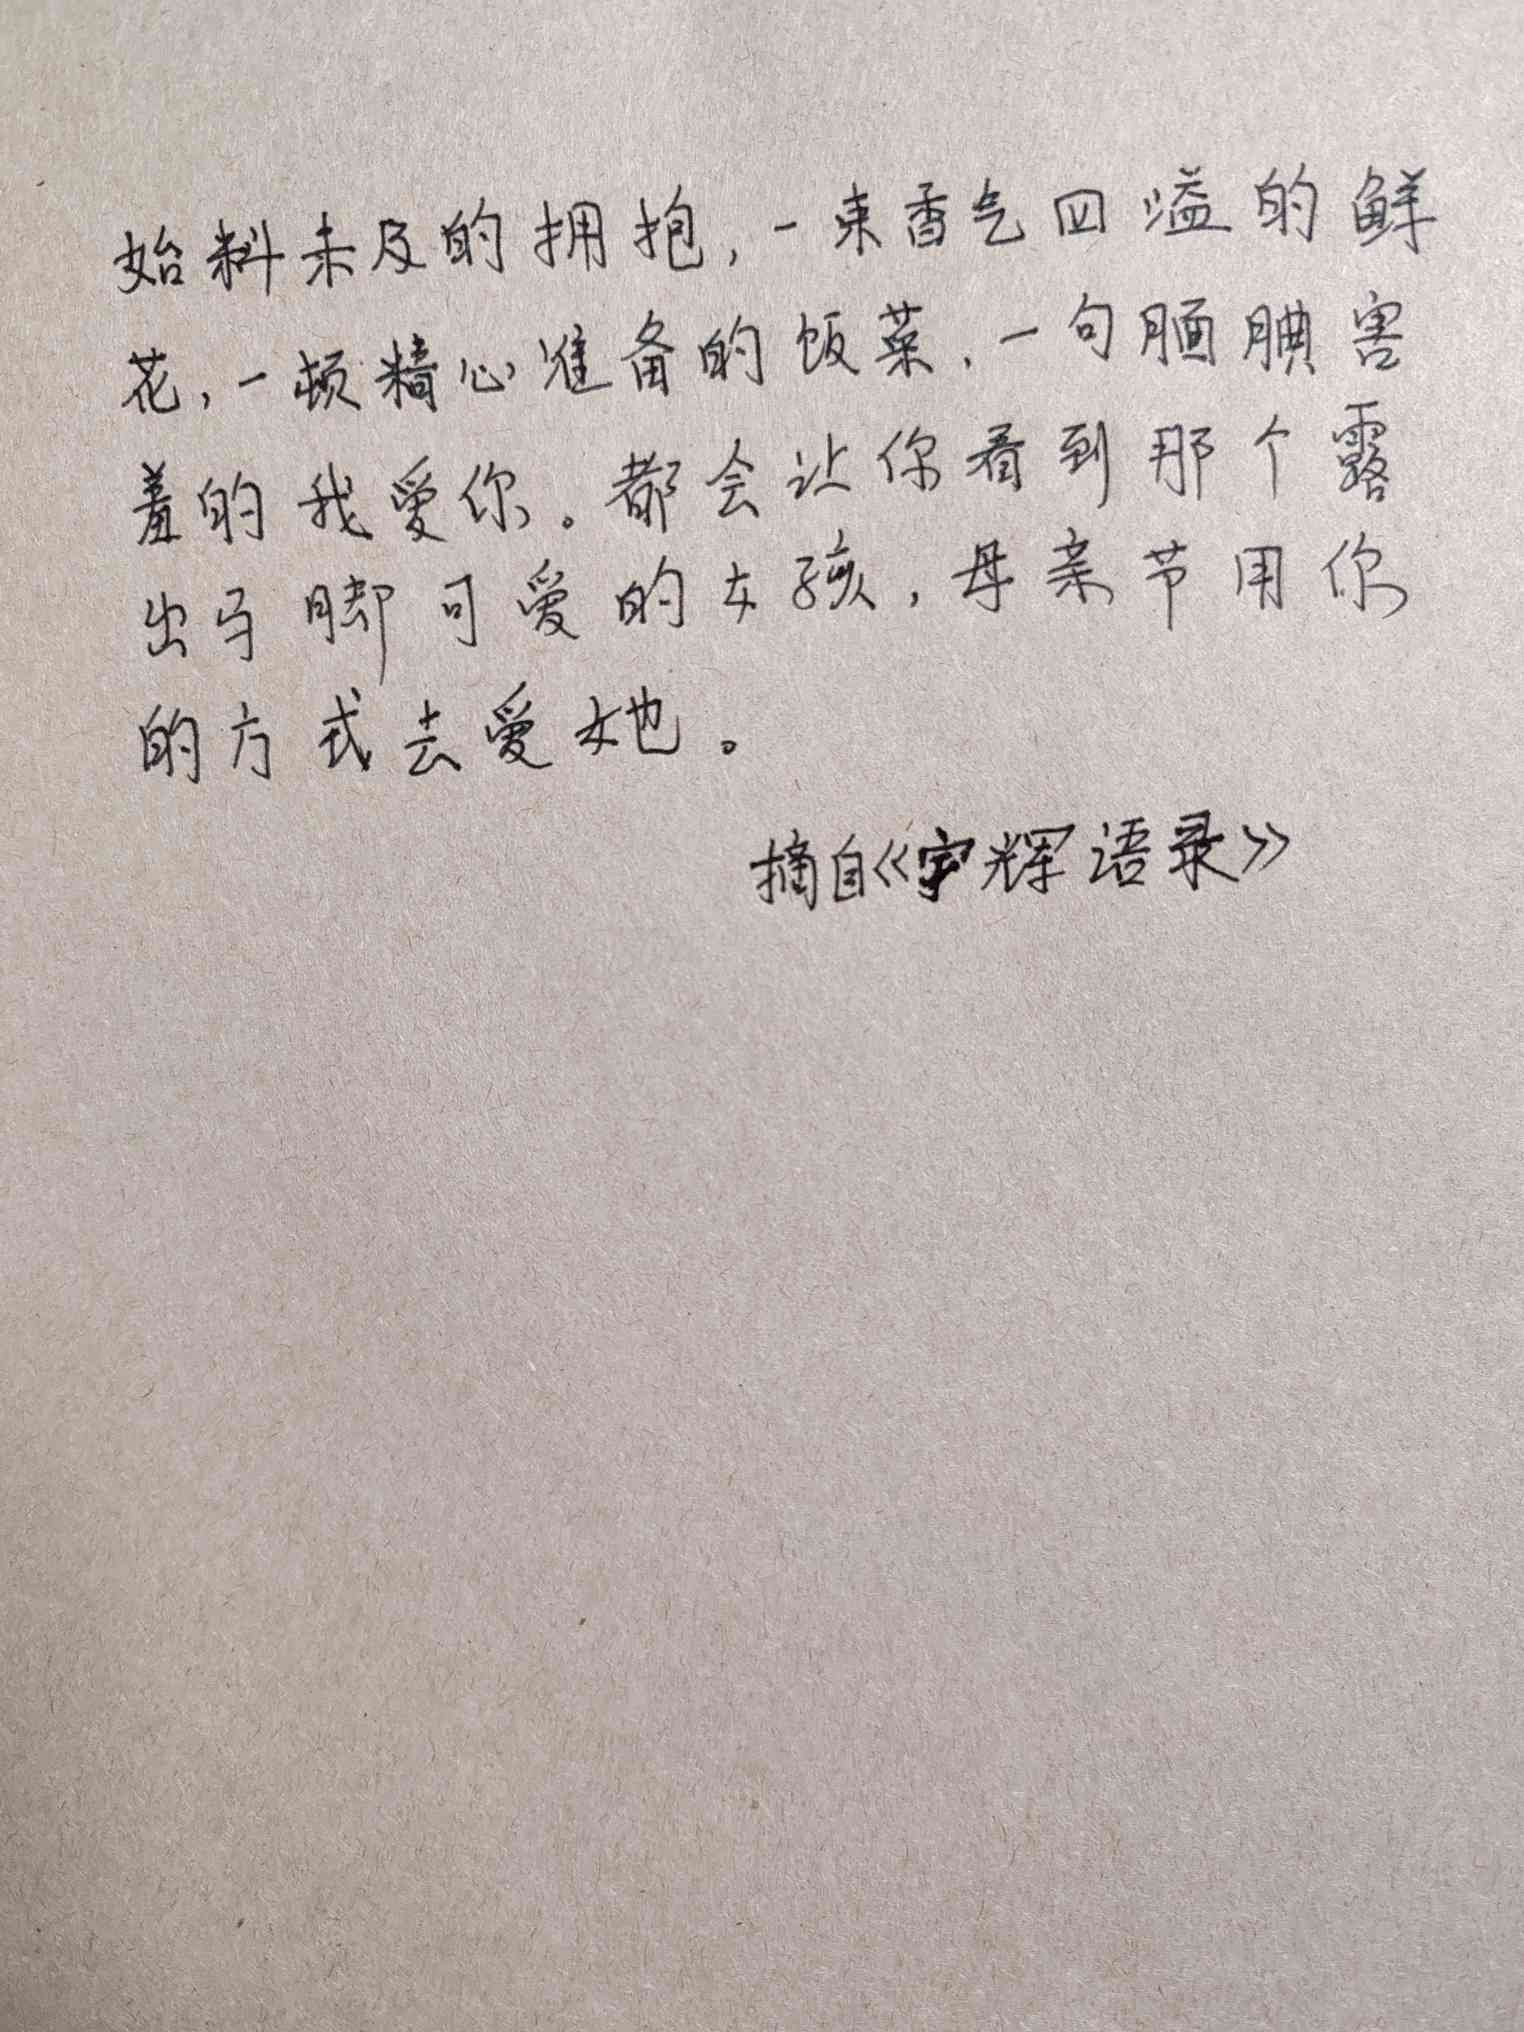 始料未及的拥抱,一束香气四溢的鲜
花,一顿精心准备的饭菜,一句腼腆害
羞的我爱你。都会让你看到那个露
出马脚可爱的女孩,母亲节用你
的方式去爱她。
摘自《宇辉语录》